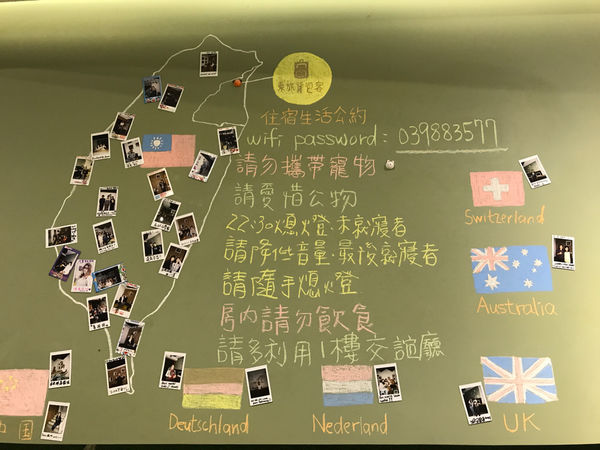 東旅背包客
住宿生活公約
wifi password: 039883577
請勿攜帶寵物
請愛惜公物
22:30熄燈.未就寢者
請降低音量.最後就寢者
請隨手熄燈
房內請勿飲食
請多利用1樓交誼廳
Switzerland
Australia
UK
Nederland
Deutschland
中国